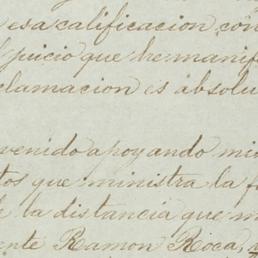 esa calificacion, con
juicio que he manif
clamacion es absolu
venido apoyando mi
tos que ministra la f
la distancia que m
ente Ramon Roca,